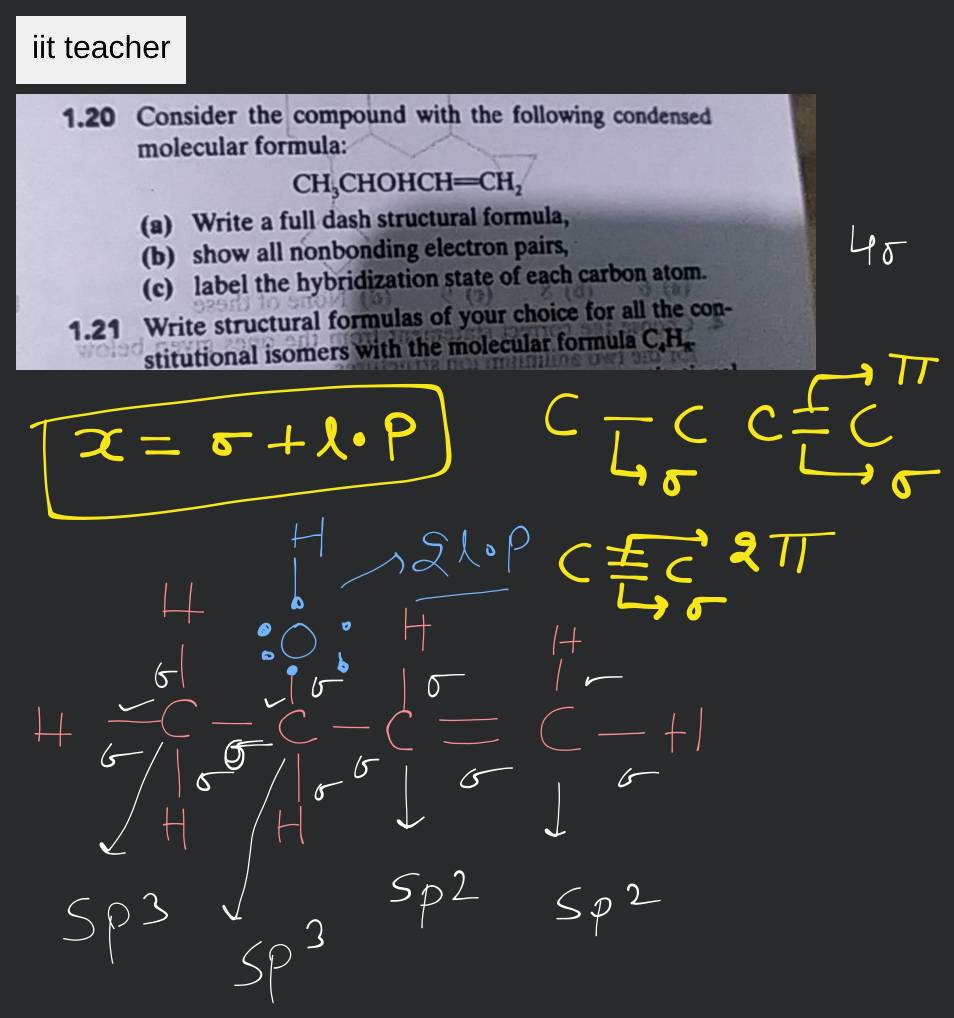 iit teacher
1.20 Consider the compound with the following condensed
molecular formula:
CH₃CHOHCH=CH₂
(a) Write a full dash structural formula,
(b) show all nonbonding electron pairs,
(c) label the hybridization state of each carbon atom.
1.21 Write structural formulas of your choice for all the con-
stitutional isomers with the molecular formula
4σ
x = σ + l.P
C — C C = C π
σ σ
C ≡ C 2π
σ
H 2l.P
H O H H
σ σ σ
H C — C — C = C — H
σ σ σ σ σ σ σ
H H
Sp3 Sp3 Sp2 Sp2